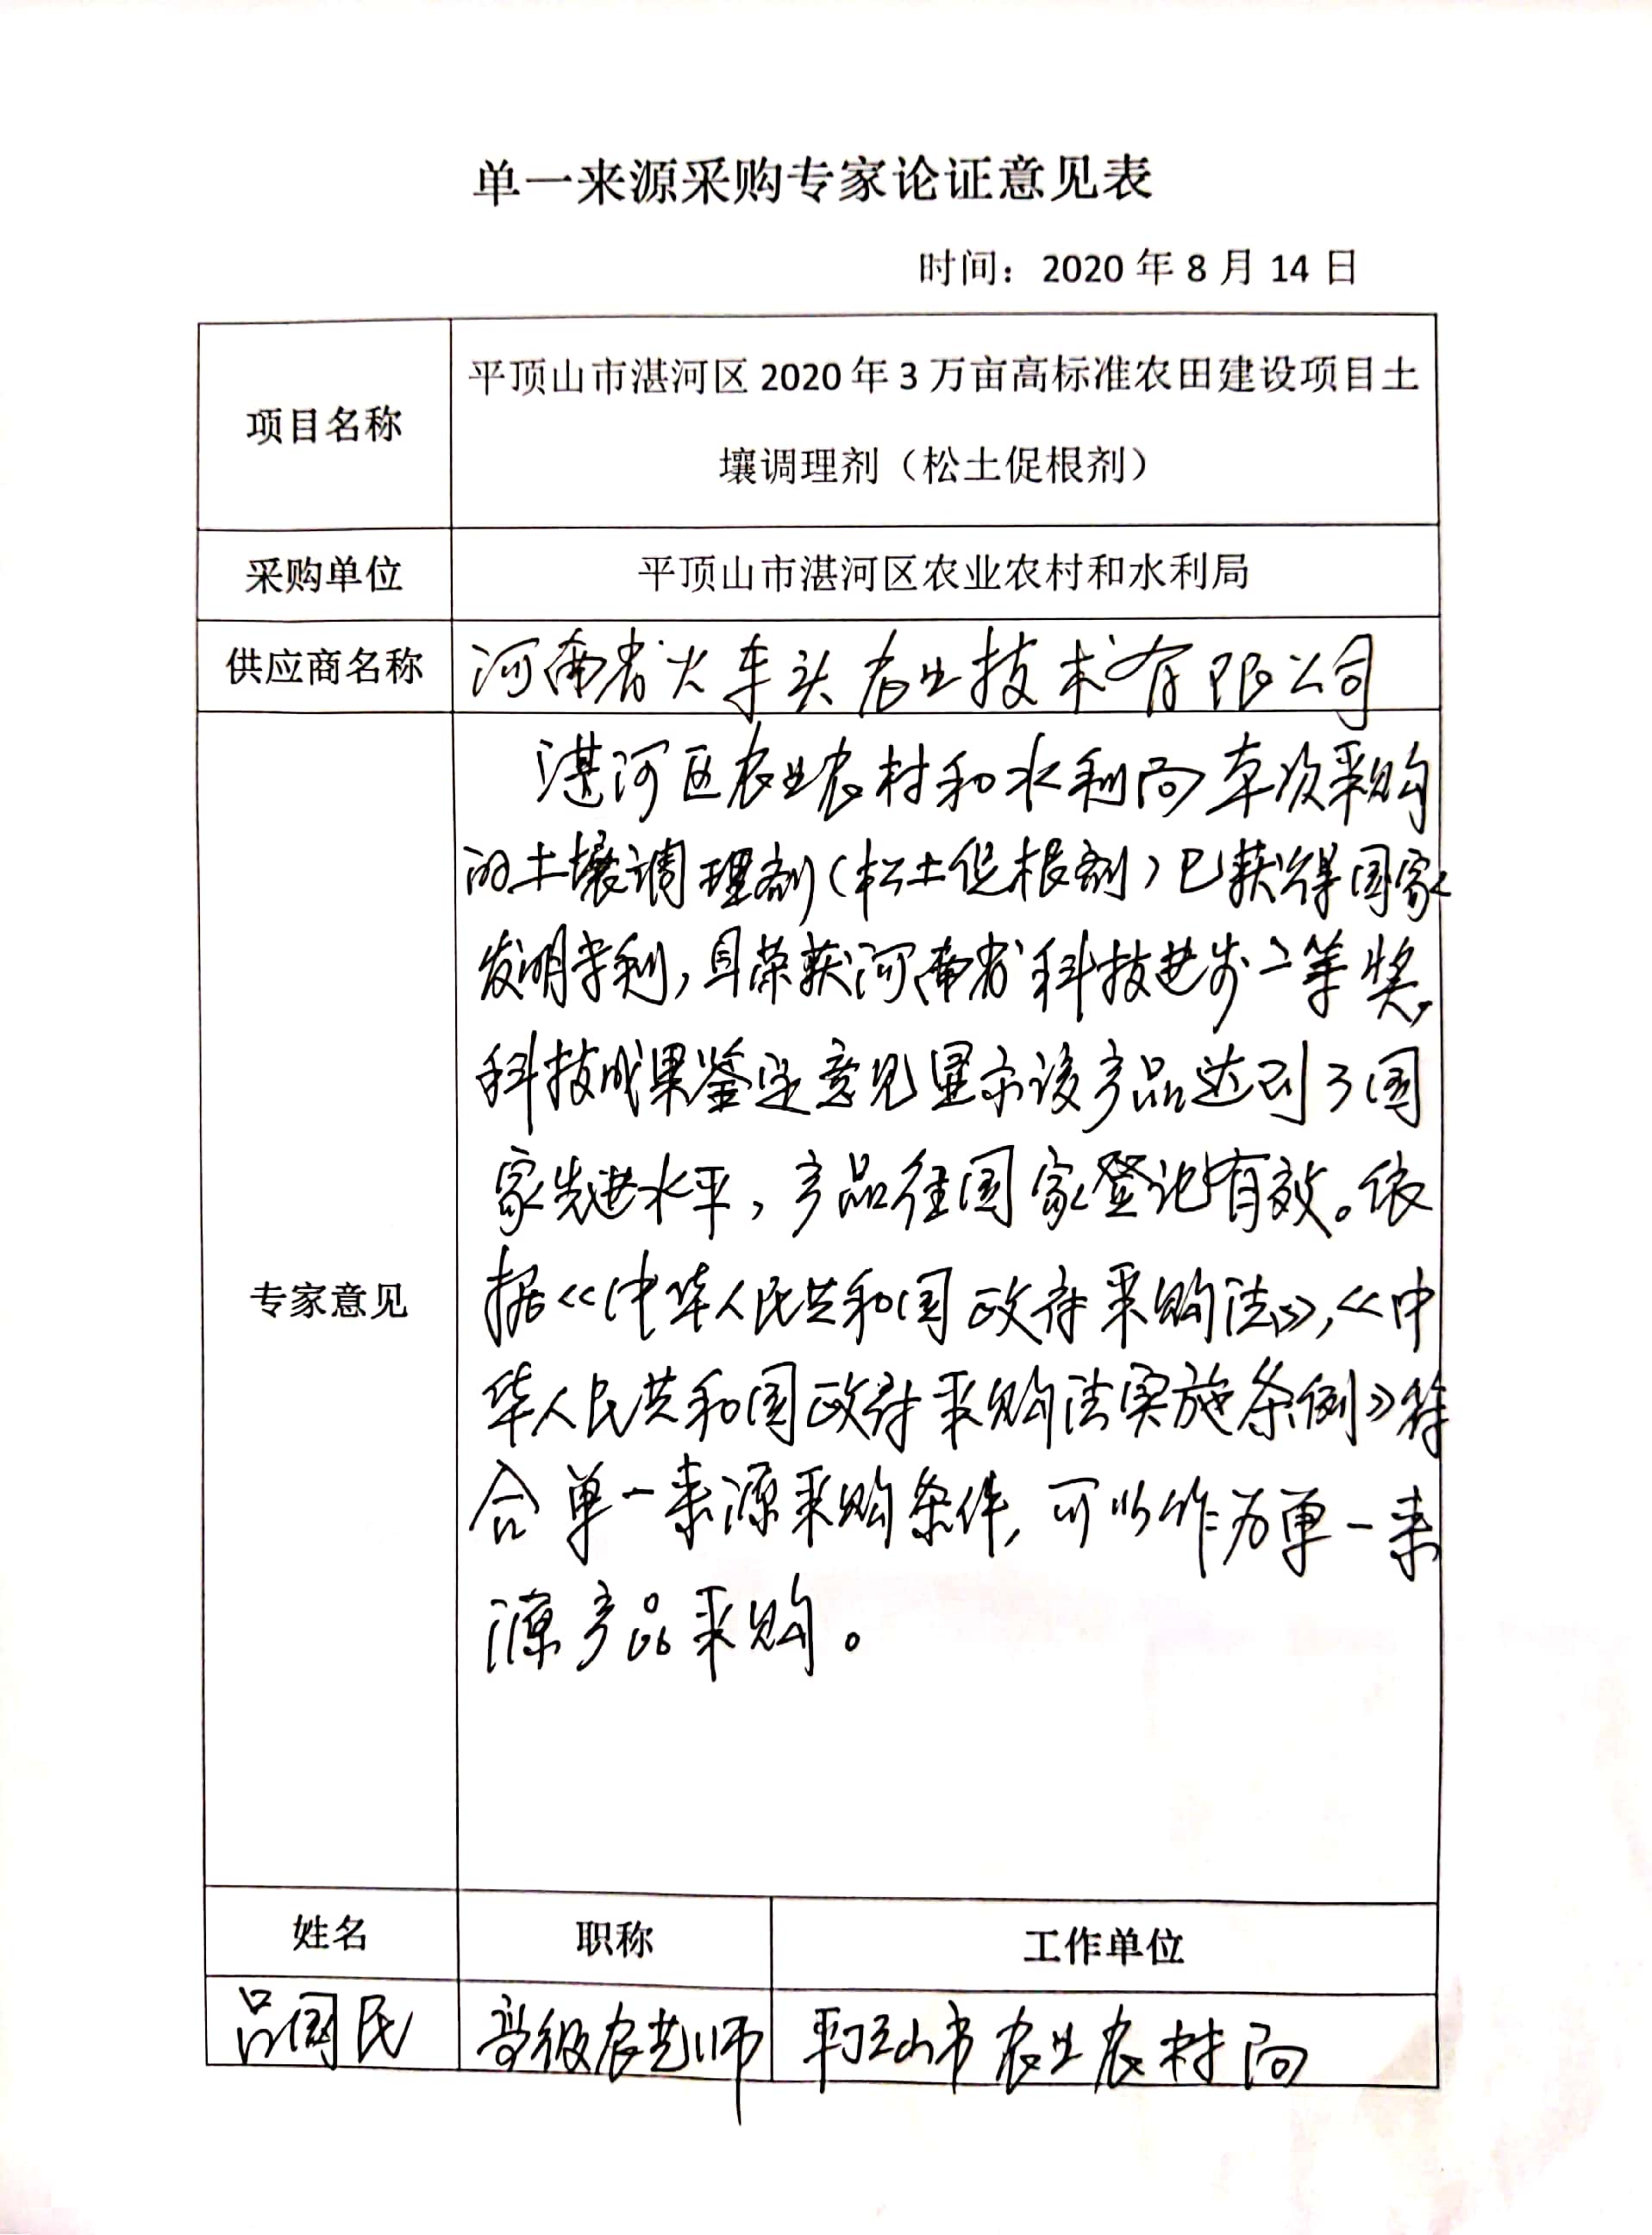 单一来源采购专家论证意见表
时间：2020年8月14日
项目名称
平顶山市湛河区2020年3万亩高标准农田建设项目土
壤调理剂（松土促根剂）
采购单位
平顶山市湛河区农业农村和水利局
供应商名称
河南省火车头农业技术有限公司
专家意见
湛河区农业农村和水利局本次采购
的土壤调理剂（松土促根剂）已获得国家
发明专利，且荣获河南省科技进步二等奖，
科技成果鉴定意见显示该产品达到了国
家先进水平，产品经国家登记有效。依
据《中华人民共和国政府采购法》，《中
华人民共和国政府采购法实施条例》符
合单一来源采购条件，可以作为单一来
源产品采购。
姓名 职称 工作单位
吕国民 高级农艺师 平顶山市农业农村局